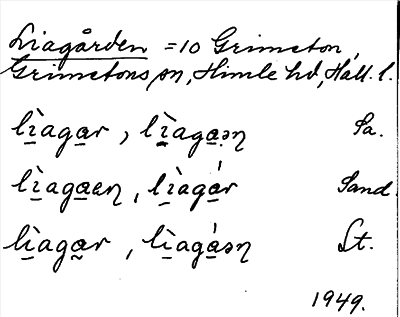 Liagården =10 Grimeton,
Grimetons sn, Himle hd, Hall. l.
lìagar, lìagaən Sa.
lìagaen, lìagár Sand.
lìagar, lìagáən Lt.
1949.